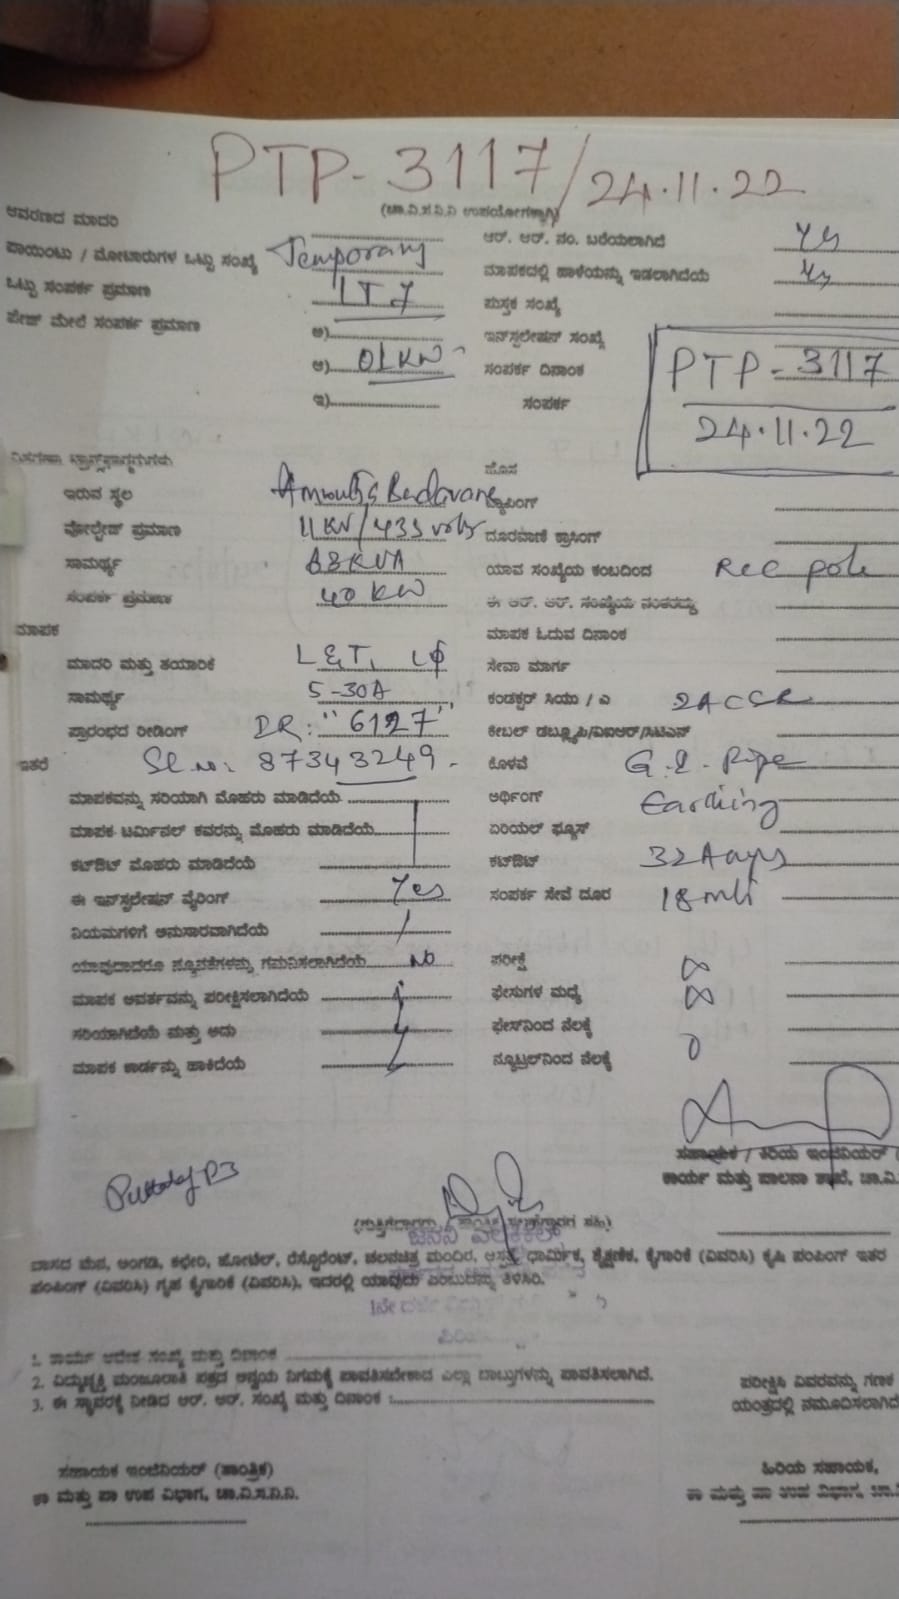 PTP-3117/24.11.22
(ಚಾ.ವಿ.ಸ.ನಿ.ನಿ ಉಪಯೋಗಕ್ಕಾಗಿ)
ಆವರಣದ ಮಾದರಿ
ಆರ್. ಆರ್. ನಂ. ಬರೆಯಲಾಗಿದೆ Yes
ಪಾಯಿಂಟು / ಮೋಟಾರುಗಳ ಒಟ್ಟು ಸಂಖ್ಯೆ Temporary
ಮಾಪಕದಲ್ಲಿ ಹಾಳೆಯನ್ನು ಇಡಲಾಗಿದೆಯೆ Yes
ಒಟ್ಟು ಸಂಪರ್ಕ ಪ್ರಮಾಣ LT7
ಪುಸ್ತಕ ಸಂಖ್ಯೆ
ಪೇಜ್ ಮೇಲೆ ಸಂಪರ್ಕ ಪ್ರಮಾಣ ಅ)
ಇನ್‌ಸ್ಟಲೇಷನ್ ಸಂಖ್ಯೆ
ಆ) 01KW
ಸಂಪರ್ಕ ದಿನಾಂಕ PTP-3117
ಇ)
ಸಂಪರ್ಕ 24.11.22
ಇರುವ ಸ್ಥಳ Badavane
ಹೊಸ
ಟ್ಯಾಪಿಂಗ್
ವೋಲ್ಟೇಜ್ ಪ್ರಮಾಣ 11KV/433 volts
ದೂರವಾಣಿ ಕ್ರಾಸಿಂಗ್
ಸಾಮರ್ಥ್ಯ KVA
ಯಾವ ಸಂಖ್ಯೆಯ ಕಂಬದಿಂದ Rcc pole
ಸಂಪರ್ಕ ಪ್ರಮಾಣ 40 KW
ಈ ಆರ್. ಆರ್. ಸಂಖ್ಯೆಯ
ಮಾಪಕ
ಮಾಪಕ ಓದುವ ದಿನಾಂಕ
ಮಾದರಿ ಮತ್ತು ತಯಾರಿಕೆ L&T, 1ϕ
ಸೇವಾ ಮಾರ್ಗ
ಸಾಮರ್ಥ್ಯ 5-30A
ಕಂಡಕ್ಟರ್ ಸಿಯು / ಎ 2ACSR
ಪ್ರಾರಂಭದ ರೀಡಿಂಗ್ IR: "6127"
ಕೇಬಲ್ ಡಬ್ಲ್ಯೂಪಿ/ವಿಐಆರ್/ಸಿಟಿಎಸ್
ಇತರೆ Sl no: 87343249
ಕೊಳವೆ G.I. Pipe
ಮಾಪಕವನ್ನು ಸರಿಯಾಗಿ ಮೊಹರು ಮಾಡಿದೆಯೆ
ಅರ್ಥಿಂಗ್ Earthing
ಮಾಪಕ ಟರ್ಮಿನಲ್ ಕವರನ್ನು ಮೊಹರು ಮಾಡಿದೆಯೆ
ಏರಿಯಲ್ ಫ್ಯೂಸ್
ಕಟ್‌ಔಟ್ ಮೊಹರು ಮಾಡಿದೆಯೆ
ಕಟ್‌ಔಟ್ 32A amps
ಈ ಇನ್‌ಸ್ಟಲೇಷನ್ ವೈರಿಂಗ್ Yes
ಸಂಪರ್ಕ ಸೇವೆ ದೂರ 18 mtr
ನಿಯಮಗಳಿಗೆ ಅನುಸಾರವಾಗಿದೆಯೆ
ಯಾವುದಾದರೂ ನ್ಯೂನತೆಗಳನ್ನು ಗಮನಿಸಲಾಗಿದೆಯೆ No
ಪರೀಕ್ಷೆ ∞
ಮಾಪಕ ಆವರ್ತವನ್ನು ಪರೀಕ್ಷಿಸಲಾಗಿದೆಯೆ
ಫೇಸುಗಳ ಮಧ್ಯೆ ∞
ಸರಿಯಾಗಿದೆಯೆ ಮತ್ತು ಅದು
ಫೇಸ್‌ನಿಂದ ನೆಲಕ್ಕೆ
ಮಾಪಕ ಕಾರ್ಡನ್ನು ಹಾಕಿದೆಯೆ
ನ್ಯೂಟ್ರಲ್‌ನಿಂದ ನೆಲಕ್ಕೆ 0
ಸಹಾಯಕ / ಕಿರಿಯ ಇಂಜಿನಿಯರ್
ಕಾರ್ಯ ಮತ್ತು ಪಾಲನಾ ಶಾಖೆ, ಚಾ.ವಿ.
(ಗುತ್ತಿಗೆದಾರರು,
ಜನನಿ ಎಲೆಕ್ಟ್ರಿಕಲ್
ವಾಸದ ಮನೆ, ಅಂಗಡಿ, ಕಛೇರಿ, ಹೋಟೆಲ್, ರೆಸ್ಟೋರೆಂಟ್, ಚಲನಚಿತ್ರ ಮಂದಿರ, ಆಸ್ಪತ್ರೆ, ಧಾರ್ಮಿಕ, ಶೈಕ್ಷಣಿಕ, ಕೈಗಾರಿಕೆ (ವಿವರಿಸಿ) ಕೃಷಿ ಪಂಪಿಂಗ್ ಇತರ
ಪಂಪಿಂಗ್ (ವಿವರಿಸಿ) ಗೃಹ ಕೈಗಾರಿಕೆ (ವಿವರಿಸಿ), ಇದರಲ್ಲಿ ಯಾವುದು ಎಂಬುದನ್ನು ತಿಳಿಸಿರಿ.
1. ಕಾರ್ಯ ಆದೇಶ ಸಂಖ್ಯೆ ಮತ್ತು ದಿನಾಂಕ
2. ವಿದ್ಯುಚ್ಛಕ್ತಿ ಮಂಜೂರಾತಿ ಪತ್ರದ ಅನ್ವಯ ನಿಗಮಕ್ಕೆ ಪಾವತಿಸಬೇಕಾದ ಎಲ್ಲಾ ಬಾಬ್ತುಗಳನ್ನು ಪಾವತಿಸಲಾಗಿದೆ.
3. ಈ ಸ್ಥಾವರಕ್ಕೆ ನೀಡಿದ ಆರ್. ಆರ್. ಸಂಖ್ಯೆ ಮತ್ತು ದಿನಾಂಕ :
ಪರೀಕ್ಷಿಸಿ ವಿವರವನ್ನು ಗಣಕ
ಯಂತ್ರದಲ್ಲಿ ನಮೂದಿಸಲಾಗಿದೆ
ಸಹಾಯಕ ಇಂಜಿನಿಯರ್ (ತಾಂತ್ರಿಕ)
ಹಿರಿಯ ಸಹಾಯಕ,
ಕಾ ಮತ್ತು ಪಾ ಉಪ ವಿಭಾಗ, ಚಾ.ವಿ.ಸ.ನಿ.ನಿ.
ಕಾ ಮತ್ತು ಪಾ ಉಪ ವಿಭಾಗ,